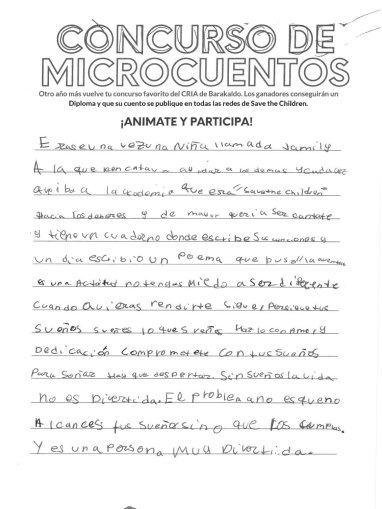 CONCURSO DE
MICROCUENTOS
Otro año más vuelve tu concurso favorito del CRIA de Barakaldo. Los ganadores conseguirán un
Diploma y que su cuento se publique en todas las redes de Save the Children.
¡ANIMATE Y PARTICIPA!
Erase una vez una Niña llamada Jamily
A la que encantava a los demas y cada vez
a la academia que era "Save the Children"
Hacia los deberes y de mayor queria ser cantate
y tiene un cuaderno donde escribe sus canciones y
un dia escribio un Poema que puso//la aventura
es una Actitud no tengas Miedo a Ser diferente
Cuando Quieras rendirte Sigue, Persigue tus
Sueños Se lo que Haz lo con Amor y
Dedicación comprometete con tus Sueños
Para Soñar Hay que despertar. Sin Sueños la vida
no es Divertida. El problema no es que no
Alcances tus Sueños sino que Los cumplas.
Y es una Persona Mua Divertida.